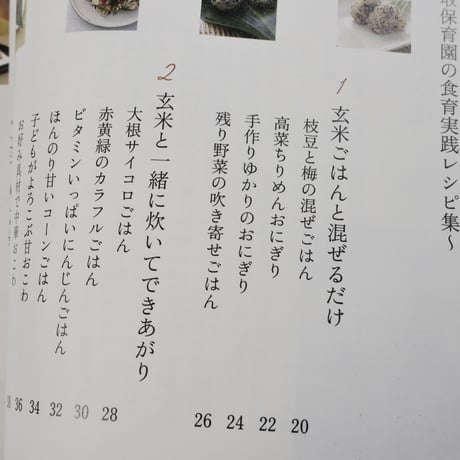 取保育園の食育実践レシピ集～
1 玄米ごはんと混ぜるだけ
枝豆と梅の混ぜごはん 20
高菜ちりめんおにぎり 22
手作りゆかりのおにぎり 24
残り野菜の吹き寄せごはん 26
2 玄米と一緒に炊いてできあがり
大根サイコロごはん 28
赤黄緑のカラフルごはん 30
ビタミンいっぱいにんじんごはん 32
ほんのり甘いコーンごはん 34
子どもがよろこぶ甘おこわ 36
お好み具材で中華おこわ